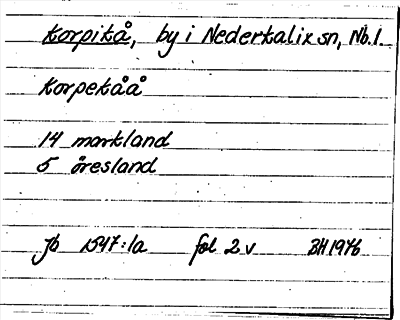 Korpikå, by i Nederkalix sn, Nb. l.
Korpekåå
14 markland
5 öresland
Jb 1547:1a fol 2 v BH 1976